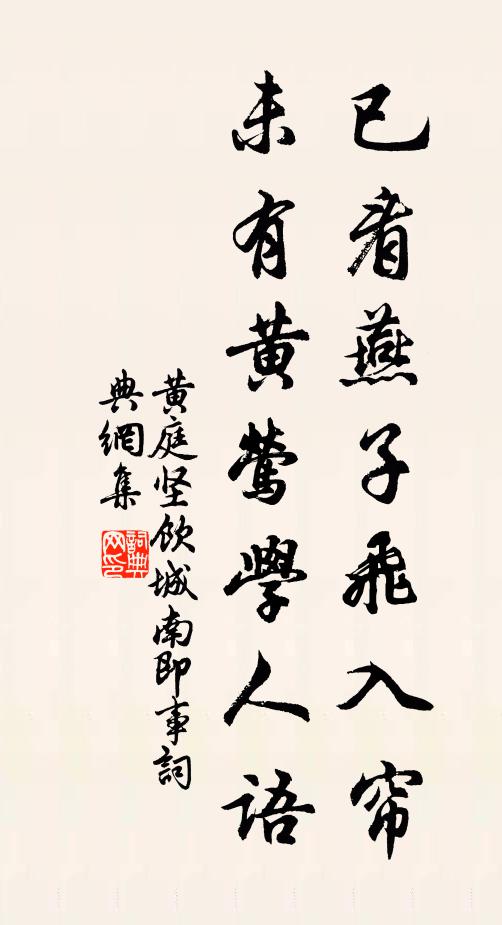 已看燕子飛入帘
未有黄鶯學人語
黄庭坚飲城南即事詞
典網集
詞典网印